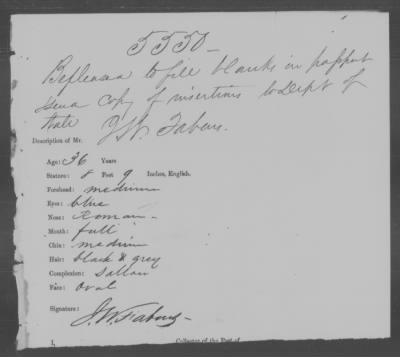 5550-
Be pleased to fill blanks in passport
send copy of insertions to Dept of
State J. W. Fabens.
Description of Mr.
Age: 36 Years
Stature: 5 Feet 9 Inches, English.
Forehead: medium
Eyes: blue
Nose: Roman-
Mouth: full
Chin: medium
Hair: black & grey
Complexion: Sallow
Face: Oval
Signature: J. W. Fabens
I, Collector of the Port of